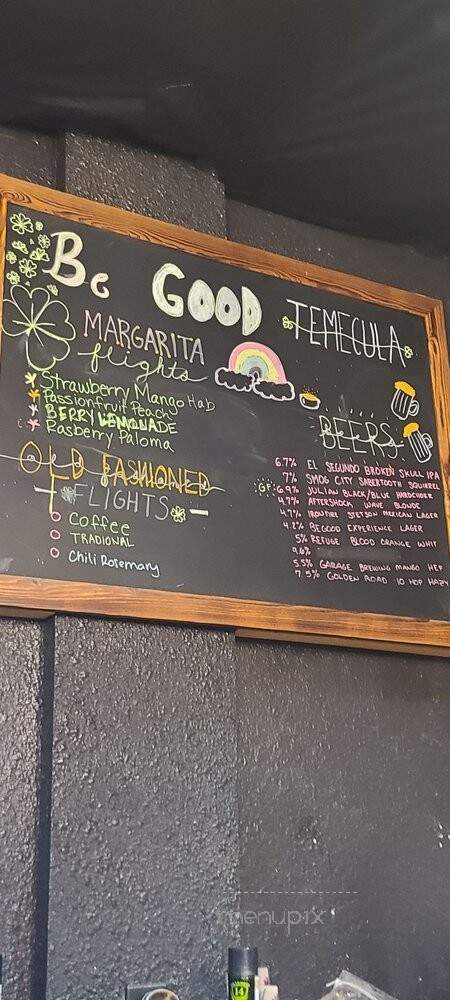 Be GOOD
TEMECULA
MARGARITA
flights
Strawberry Mango Hab
Passionfruit Peach
BERRY LEMONADE
Rasberry Paloma
OLD FASHIONED
FLIGHTS
Coffee
TRADIONAL
Chili Rosemary
BEERS
6.7% EL SEGUNDO BROKEN SKULL IPA
7% SMOG CITY SABERTOOTH SQUIRREL
GF 6.9% JULIAN BLACK/BLUE HARDCIDER
4.7% AFTERSHOCK WAVE BLONDE
4.7% IRONFIRE STETSON MEXICAN LAGER
4.2% BEGOOD EXPERIENCE LAGER
5% REFUGE BLOOD ORANGE WHIT
9.6%
5.5% GARAGE BREWING MANGO HEF
7.5% GOLDEN ROAD 10 HOP HAZY
menupix
14